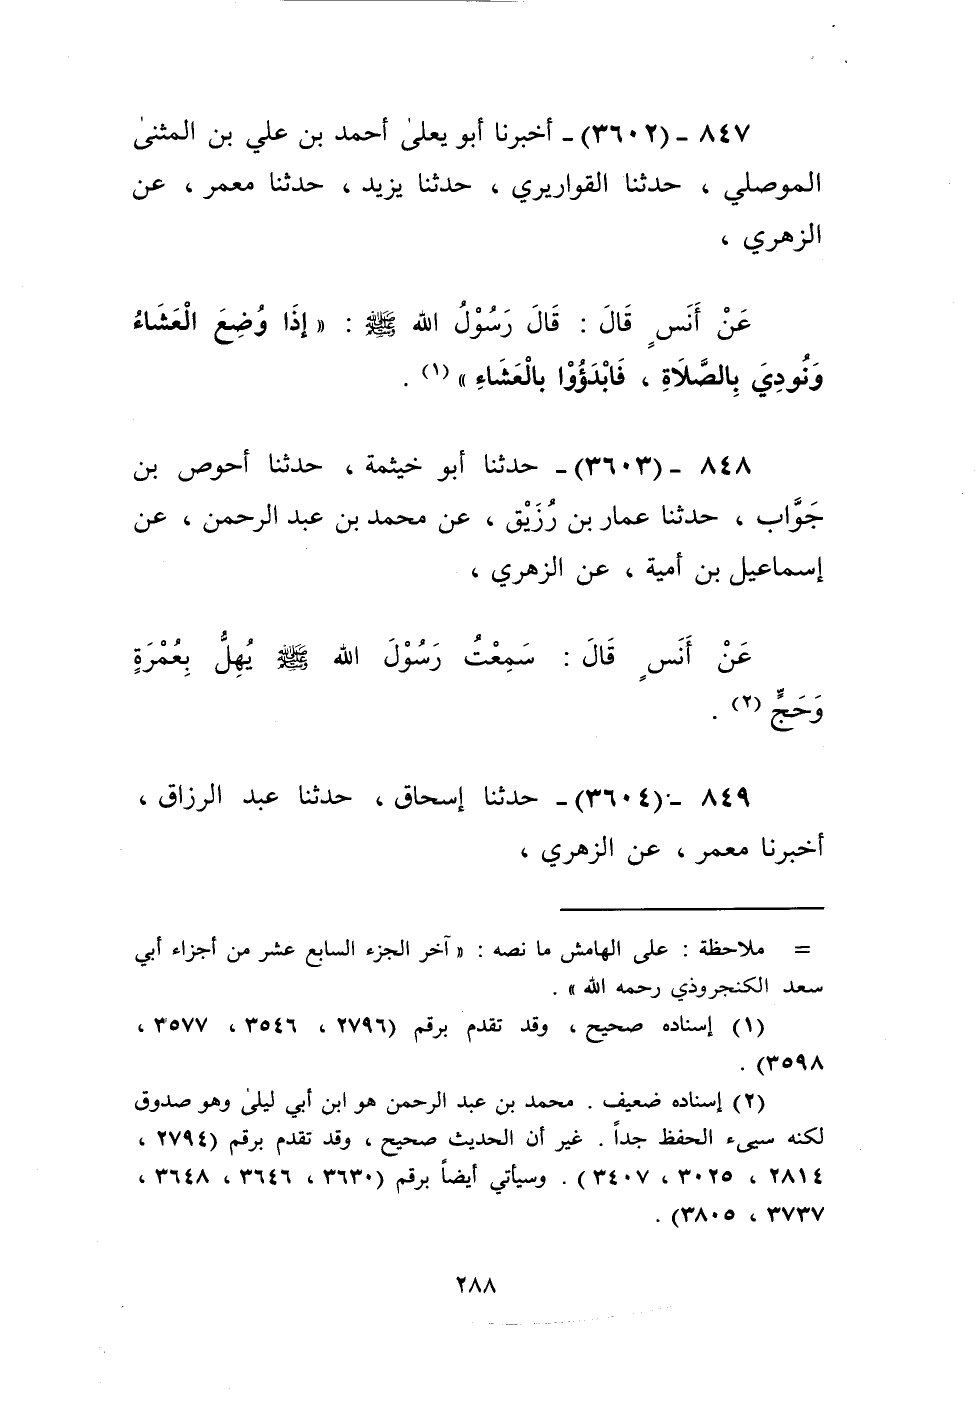 ٨٤٧ - (٣٦٠٢)- أخبرنا أبو يعلىٰ أحمد بن علي بن المثنىٰ
الموصلي ، حدثنا القواريري ، حدثنا يزيد ، حدثنا معمر ، عن
الزهري ،
عَنْ أَنَسٍ قَالَ : قَالَ رَسُوْلُ الله ﷺ : « إِذَا وُضِعَ الْعَشَاءُ
وَنُودِيَ بِالصَّلَاةِ ، فَابْدَؤُوْا بِالْعَشَاءِ » (١) .
٨٤٨ - (٣٦٠٣)- حدثنا أبو خيثمة ، حدثنا أحوص بن
جَوَّاب ، حدثنا عمار بن رُزَيْق ، عن محمد بن عبد الرحمن ، عن
إسماعيل بن أمية ، عن الزهري ،
عَنْ أَنَسٍ قَالَ : سَمِعْتُ رَسُوْلَ الله ﷺ يُهِلُّ بِعُمْرَةٍ
وَحَجٍّ (٢) .
٨٤٩ - (٣٦٠٤)- حدثنا إسحاق ، حدثنا عبد الرزاق ،
أخبرنا معمر ، عن الزهري ،
= ملاحظة : على الهامش ما نصه : « آخر الجزء السابع عشر من أجزاء أبي
سعد الكنجروذي رحمه الله » .
(١) إسناده صحيح ، وقد تقدم برقم (٢٧٩٦ ، ٣٥٤٦ ، ٣٥٧٧ ،
٣٥٩٨) .
(٢) إسناده ضعيف . محمد بن عبد الرحمن هو ابن أبي ليلىٰ وهو صدوق
لكنه سيىء الحفظ جداً . غير أن الحديث صحيح ، وقد تقدم برقم (٢٧٩٤ ،
٢٨١٤ ، ٣٠٢٥ ، ٣٤٠٧ ) . وسيأتي أيضاً برقم (٣٦٣٠ ، ٣٦٤٦ ، ٣٦٤٨ ،
٣٧٣٧ ، ٣٨٠٥) .
٢٨٨